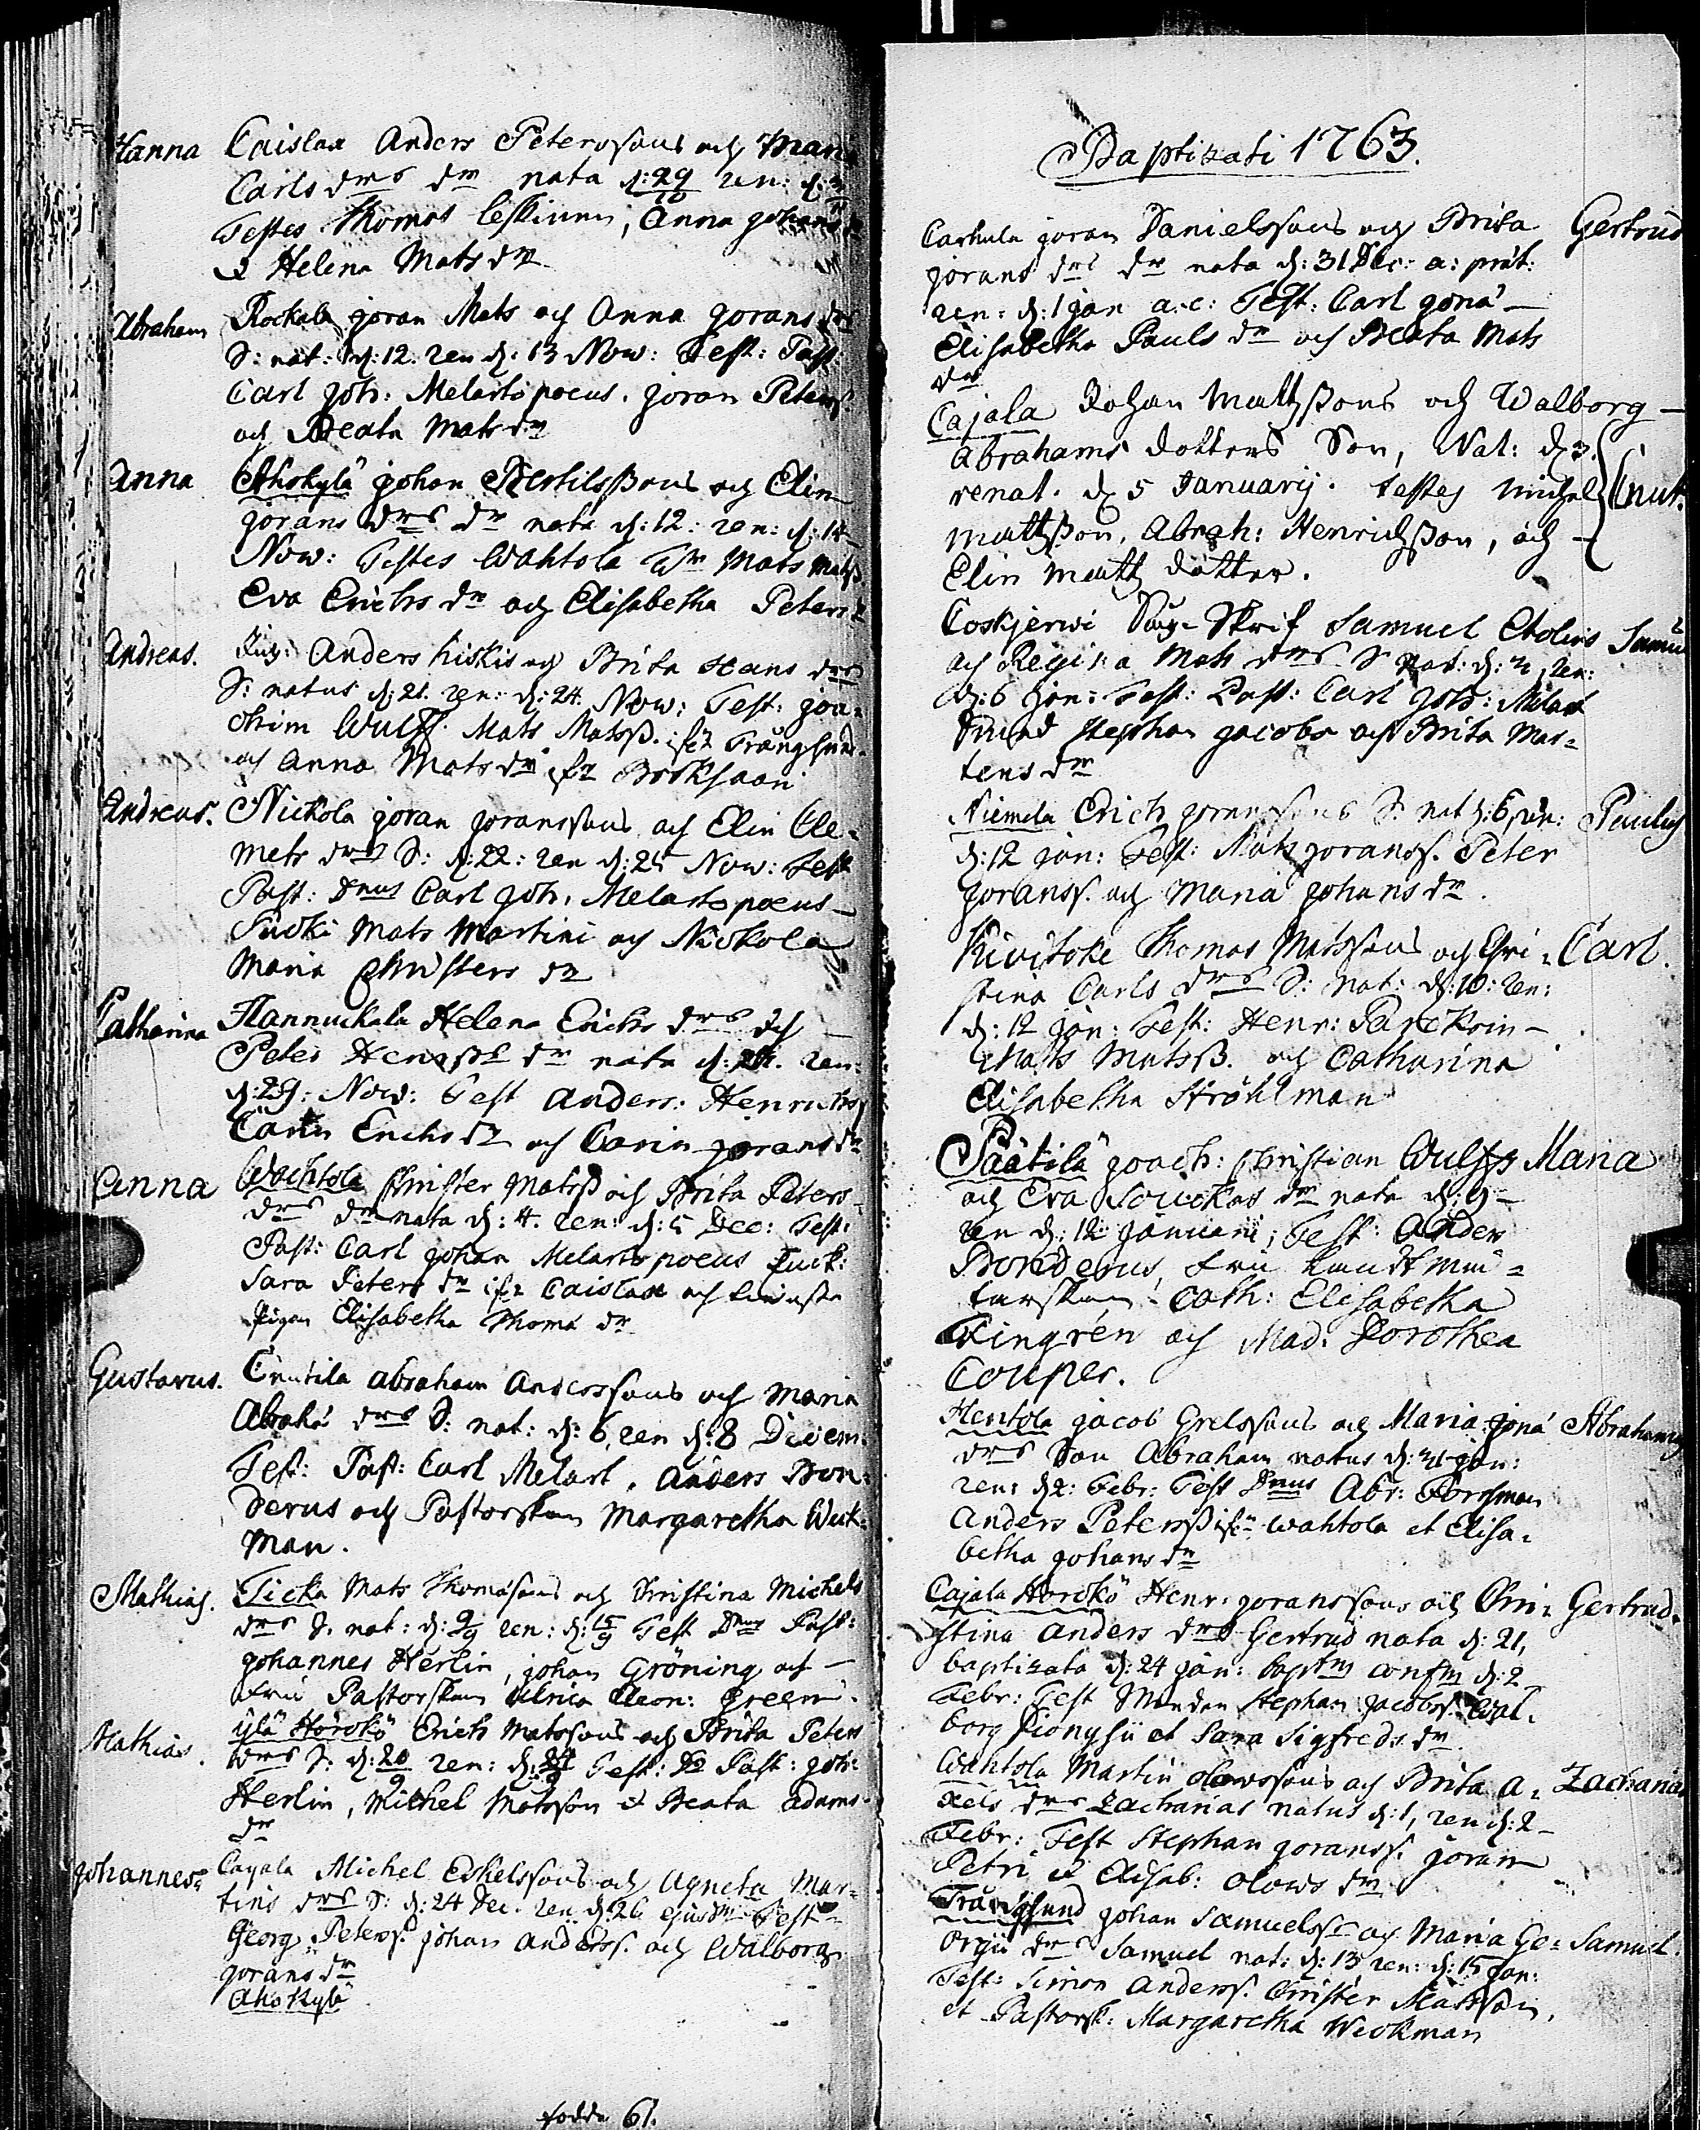 Hanna Caislax Anders Peterssons och Mari
Carls drs dr nata d: 29/10 ren: d:
Testes Thomas Leskinen, Anna Johans
& Helena Mats dr
Abraham Rockala Joran Mats och Anna Jorans drs
S: nat: d: 12. ren d: 13 Now: Test: Past:
Carl Joh: Melartopoeus. Joran Peters
och Beata Mats dr
Anna Ahokylä Johan Bertilssons och Elin
Jorans drs dr nata d: 12: ren: d: 14
Now: Testes Wahtola Mats Matss
Eva Erichs dr och Elisabetha Peters
Andreas. Anders Kiskis och Brita Hans drs
S: natus d: 21. ren: d: 24. Now: Test: Joa-
chim Wulff. Mats Matsß. ifr Trångsund.
och Anna Mats dr ifr Bocksaari
Andreas. Nickola Joran Joranssons och Elin Cle-
mets drs S: d: 22: ren d: 25 Now: Test
Past: Dnus Carl Joh: Melartopoeus
Mats Martini och Nickola
Maria Christers dr
Catharina Hannuckala Helena Erichs drs och
Peter Henrss dr nata d: ren:
d: 29: Now: Test Anders: Henrichs
Carin Erichs dr och Carin Jorans dr
Anna Wachtola Christer Matsß och Brita Peters
drs dr nata d: 4. ren: d: 5 Dec: Test:
Past: Carl Johan Melartopoeus
Sara Peters dr ifr Caislax och
Pigan Elisabetha Thomæ dr
Gustavus. Abraham Anderssons och Maria
Abrahā drs S: nat: d: 6, ren d: 8 Decem:
Test: Past: Carl Melart. Anders Bon-
derus och Pastorskan Margaretha Weck-
man.
Mathias. Ticka Mats Thomasons och Christina Michels
drs S. nat: d: 9/9 ren: d: 15/9 Test Dnus Past:
Johannes Herlin, Johan Gröning och
Fru Pastorskan Ulrica Eleon: Green
Mathias. Ylä Horckö Erich Matssons och Brita Peters
drs S: d: 20/9 ren: d: Test: Past: Joh:
Herlin, Michel Matsson & Beata Adams
dr
Johannes Cajala Michel Eskelssons och Agneta Mar-
tins drs S: d: 24 Dec. ren d: 26 ejusdm Test
Georg Peterss. Johan Anderss. och Walborg
Jorans dr
Ahokylä
födda 61.
Baptizati 1763.
Carhula Joran Danielssons och Brita Gertrud
Jorans drs dr nata d: 31 Dec: a: prät:
ren: d: 1 Jan a: c: Test: Carl Jonæ
Elisabetha Pauls dr och Beata Mats
dr
Cajala Johan Mattssons och Walborg
Abrahams dotters Son, Nat: d 3.
renat. d 5 Januarij. testes Michel Cnut.
Mattsson, Abrah: Henrichsson, och
Elin Matts dotter.
Coskjerwi Samuel Cholerus Samu
och Regina Mats drs S Nat: d: 2, ren:
d: 6 Jan: Test: Past: Carl Joh: Melart
Stephan Jacobs och Brita Mar-
tens dr
Niemela Erich Joranssons S: nat d: 6, ren: Paulus
d: 12 Jan: Test: Mats Joranss. Peter
Joranss. och Maria Johans dr.
Kiwitoke Thomas Matssons och Chri- Carl.
stina Carls drs S: Nat: d: 10: ren:
d: 12 Jan: Test: Henr:
Mats Matsß. och Catharina
Elisabetha Ströhlman
Päätilä Joach: Christian Wulffs Maria
och Eva dr nata d: 9
ren d: 12 Januarii; Test: Anders
Bonderus, Fru
Cath: Elisabetha
Fingrén och Mad: Dorothea
Couper.
Hentola Jacob Grelssons och Maria Jonæ Abrahamus
drs Son Abraham natus d: 31 Jan:
ren: d 2: Febr: Test Dnus Abr: Forssman
Anders Petersß ifr Wahtola et Elisa-
betha Johans dr
Cajala Horckö Henr: Joranssons och Chri- Gertrud.
stina Anders drs Gertrud nata d: 21,
baptizata d: 24 Jan: baptms confm d: 2
Febr: Test Stephan Jacobss. Wal-
borg Dionysii et Sara Sigfreds dr.
Wahtola Martin Olowssons och Brita A- Zacharias
xels drs Zacharias natus d: 1, ren d: 2
Febr: Test Stephan Joranss. Joran
Petri & Elisab: Olows dr
Trångsund Johan Samuelss och Maria Ge- Samuel.
orgii drs Samuel nat: d: 13 ren: d: 15 Jan:
Test: Simon Anderss. Christer Matsson,
et Pastorsk: Margaretha Weckman